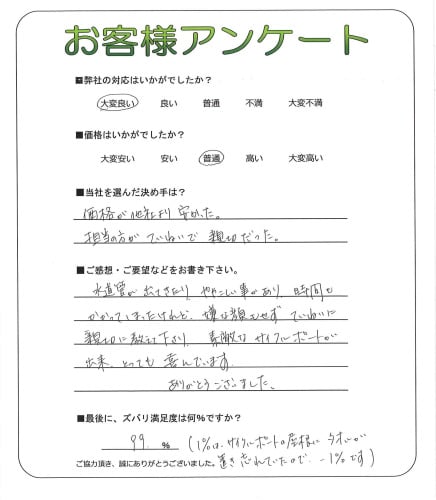 お客様アンケート
■弊社の対応はいかがでしたか?
大変良い 良い 普通 不満 大変不満
■価格はいかがでしたか?
大変安い 安い 普通 高い 大変高い
■当社を選んだ決め手は?
価格が他社より安かった。
担当の方がていねいで親切だった。
■ご感想・ご要望などをお書き下さい。
水道管が出てきたり、ややこしい事があり、時間も
かかってしまったけれど、嫌な顔もせず ていねいに
親切に教えて下さり、素敵なサイクルポートが
出来、とっても喜んでいます
ありがとうございました。
■最後に、ズバリ満足度は何%ですか?
99 % (1%は、サイクルポートの屋根に
置き忘れていたので、-1%です)
ご協力頂き、誠にありがとうございました。